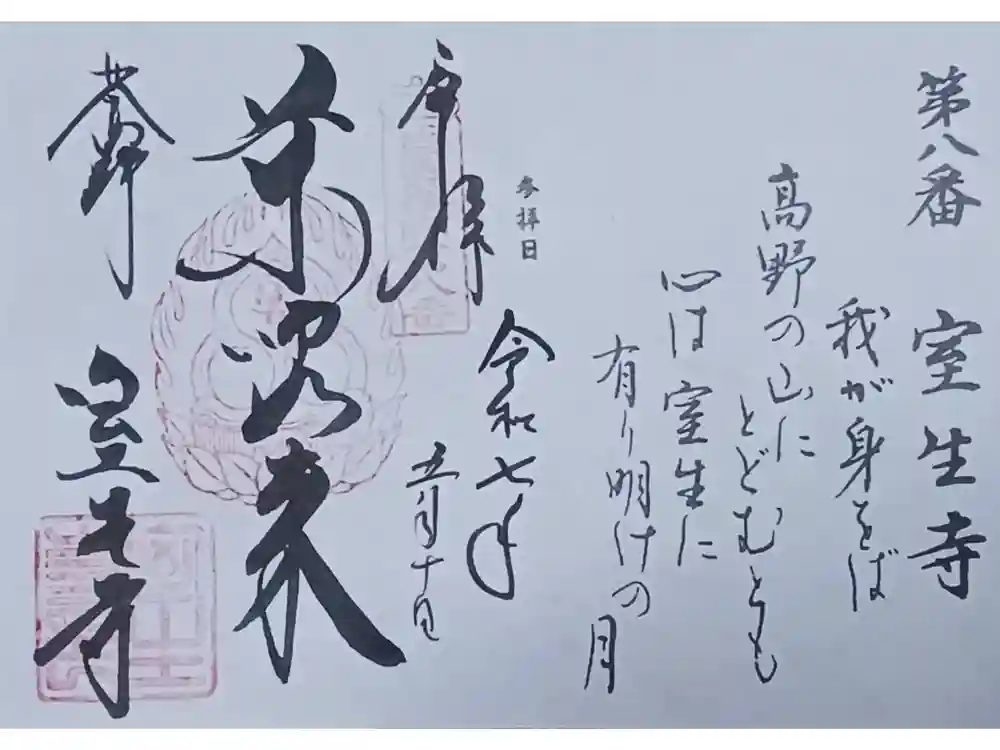 第八番 室生寺
我が身をば
高野の山に
とどむとも
心は室生に
有り明けの月
参拝日
令和七年
五月十日
奉拝
如来
室生寺